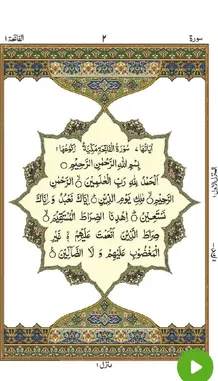 سورة ٢ الفاتحة ١
سُوْرَةُ الْفَاتِحَةِ
بِسْمِ اللّٰهِ الرَّحْمٰنِ الرَّحِيْمِ
اَلْحَمْدُ لِلّٰهِ رَبِّ الْعٰلَمِيْنَ الرَّحْمٰنِ
الرَّحِيْمِ مٰلِكِ يَوْمِ الدِّيْنِ اِيَّاكَ نَعْبُدُ وَ اِيَّاكَ
نَسْتَعِيْنُ اِهْدِنَا الصِّرَاطَ الْمُسْتَقِيْمَ
صِرَاطَ الَّذِيْنَ اَنْعَمْتَ عَلَيْهِمْ غَيْرِ
الْمَغْضُوْبِ عَلَيْهِمْ وَ لَا الضَّآلِّيْنَ
منزل ١